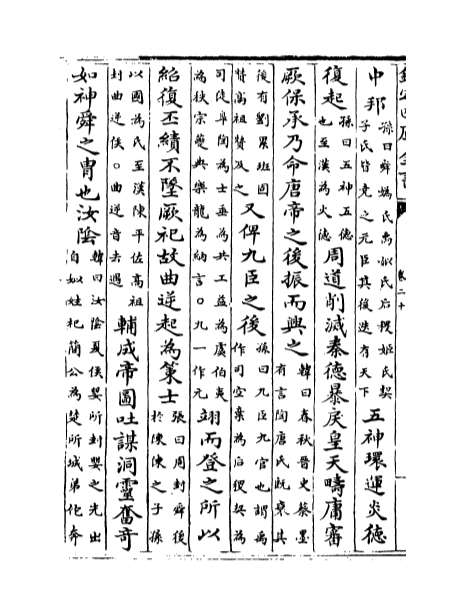 欽定四庫全書
卷二十
中邦
孫曰舜媯氏禹姒氏后稷姬氏契
子氏皆堯之元臣其後迭有天下
五神環運炎德
復起
孫曰五神五德
也至漢為火德
周道削滅秦德暴戾皇天疇庸審
厥保承乃命唐帝之後振而興之
韓曰春秋晉史蔡墨
有言陶唐氏既衰其
後有劉累班固
贊高祖贊及之
又俾九臣之後
孫曰九臣九官也謂禹
作司空棄為后稷契為
司徒皋陶為士垂為共工益為虞伯夷
為秩宗夔典樂龍為納言〇九一作元
翊而登之所以
紹復丕績不墜厥祀故曲逆起為策士
張曰周封舜後
於陳陳之子孫
以國為氏至漢陳平佐高祖
封曲逆侯〇曲逆音去遇
輔成帝圖吐謀洞靈奮奇
如神舜之胄也汝陰
韓曰汝陰夏侯嬰所封嬰之先出
自姒姓杞簡公為楚所滅弟佗奔